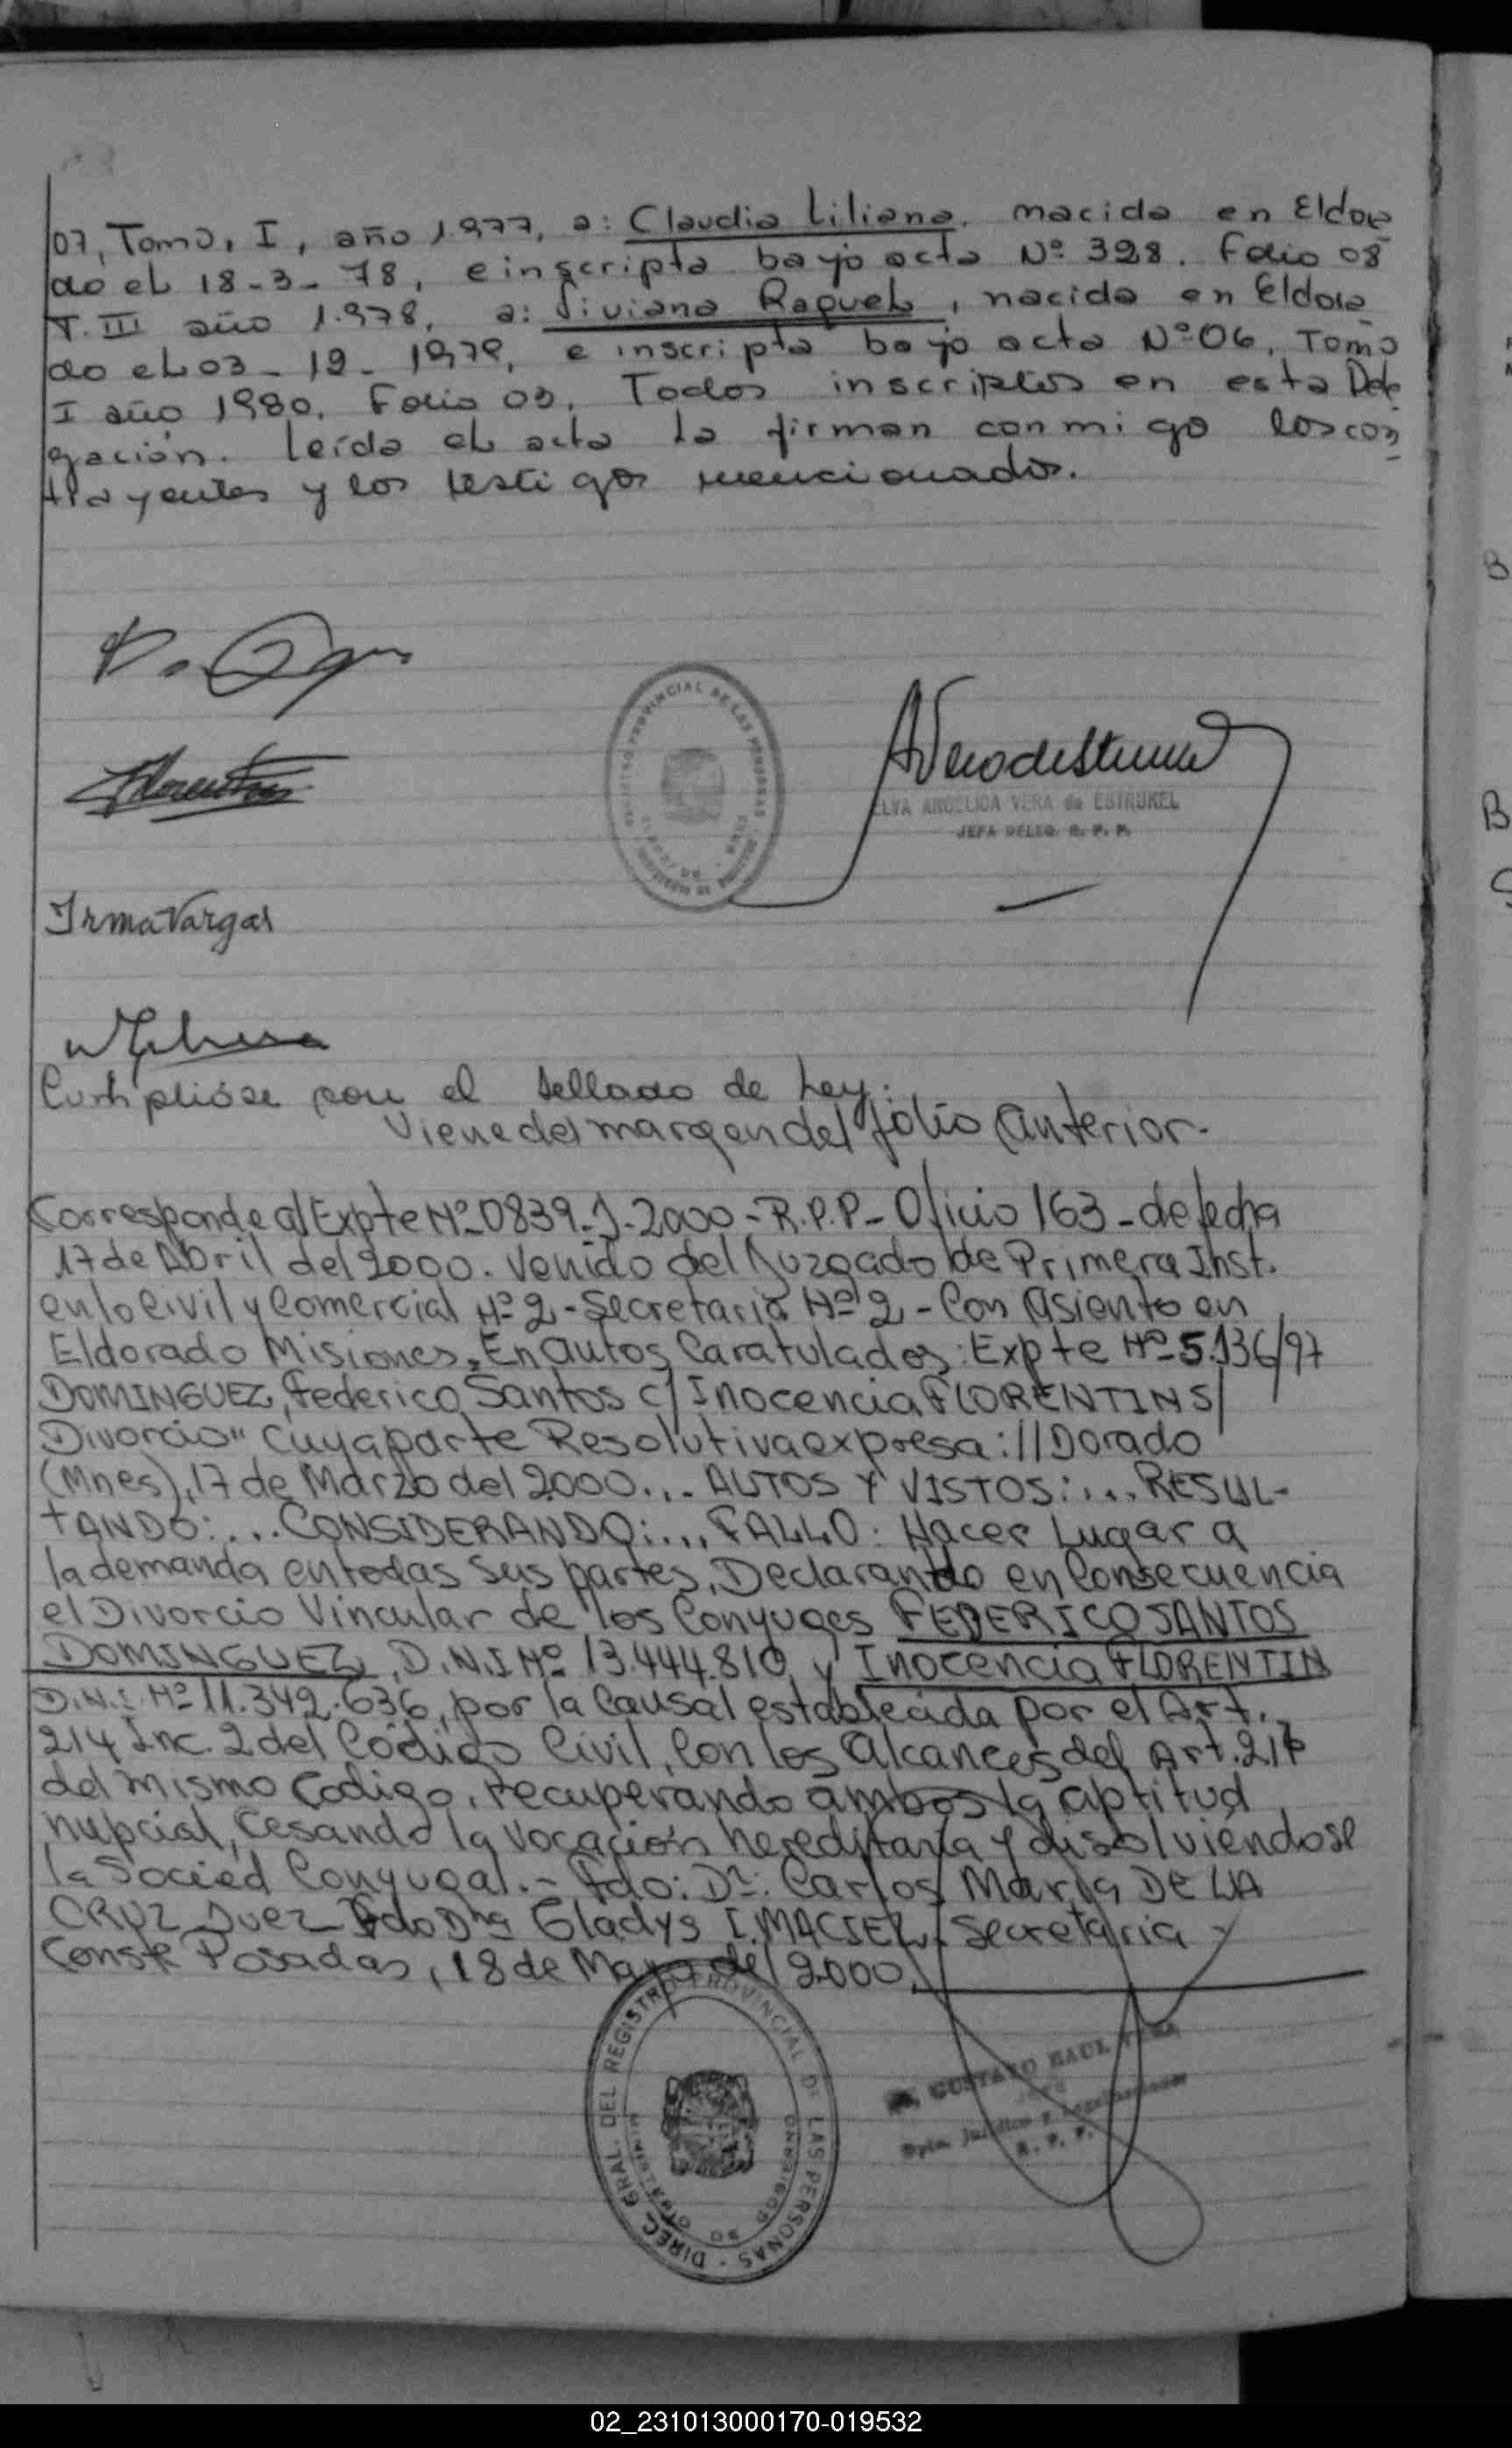 07, Tomo, I, año 1.977, a: Claudia Liliana, nacida en Eldora
do el 18-3-78, e inscripta bajo acta Nº 328. Folio 08
T. III año 1.978, a: Viviana Raquel, nacida en Eldora
do el 03-12-1979, e inscripta bajo acta Nº 06, Tomo
I año 1980. Folio 03. Todos inscriptos en esta Dele
gación. Leída el acta la firman conmigo los con
trayentes y los testigos mencionados.
REGISTRO PROVINCIAL DE LAS PERSONAS
ELVA ANGELICA VERA de ESTRUKEL
JEFA DELEG. R. P. P.
Irma Vargas
Cumplióse con el sellado de Ley.
Viene del margen del folio anterior.-
Corresponde al Expte Nº 0839-J-2000-R.P.P-Oficio 163-de fecha
17 de Abril del 2000. Venido del Juzgado de Primera Inst.
en lo Civil y Comercial Nº 2-Secretaria Nº 2-Con asiento en
Eldorado Misiones, En autos Caratulados: Expte Nº 5.136/97
DOMINGUEZ, Federico Santos C/ Inocencia FLORENTINS/
Divorcio" cuya parte Resolutiva expresa: //Dorado
(Mnes), 17 de Marzo del 2000... AUTOS Y VISTOS:... RESUL-
TANDO:... CONSIDERANDO:... FALLO: Hacer Lugar a
la demanda en todas sus partes, Declarando en Consecuencia
el Divorcio Vincular de los Conyuges FEDERICO SANTOS
DOMINGUEZ, D.N.I Nº 13.444.810 y Inocencia FLORENTIN
D.N.I. Nº 11.342.636, por la Causal establecida por el Art.
214 Inc. 2 del Código Civil, con los alcances del Art. 217
del mismo Codigo, recuperando ambos la aptitud
nupcial, Cesando la vocación hereditaria y disolviéndose
la Socied Conyugal.- Fdo: Dr. Carlos Maria DE LA
CRUZ Juez Fdo Dra Gladys I. MACIEL. Secretaria
Conste Posadas, 18 de Mayo del 2000.
DIREC. GRAL. DEL REGISTRO PROVINCIAL DE LAS PERSONAS
MINISTERIO DE GOBIERNO
GUSTAVO RAUL
JEFE
Dpto. Jurídico
R. P. P.
02_231013000170-019532